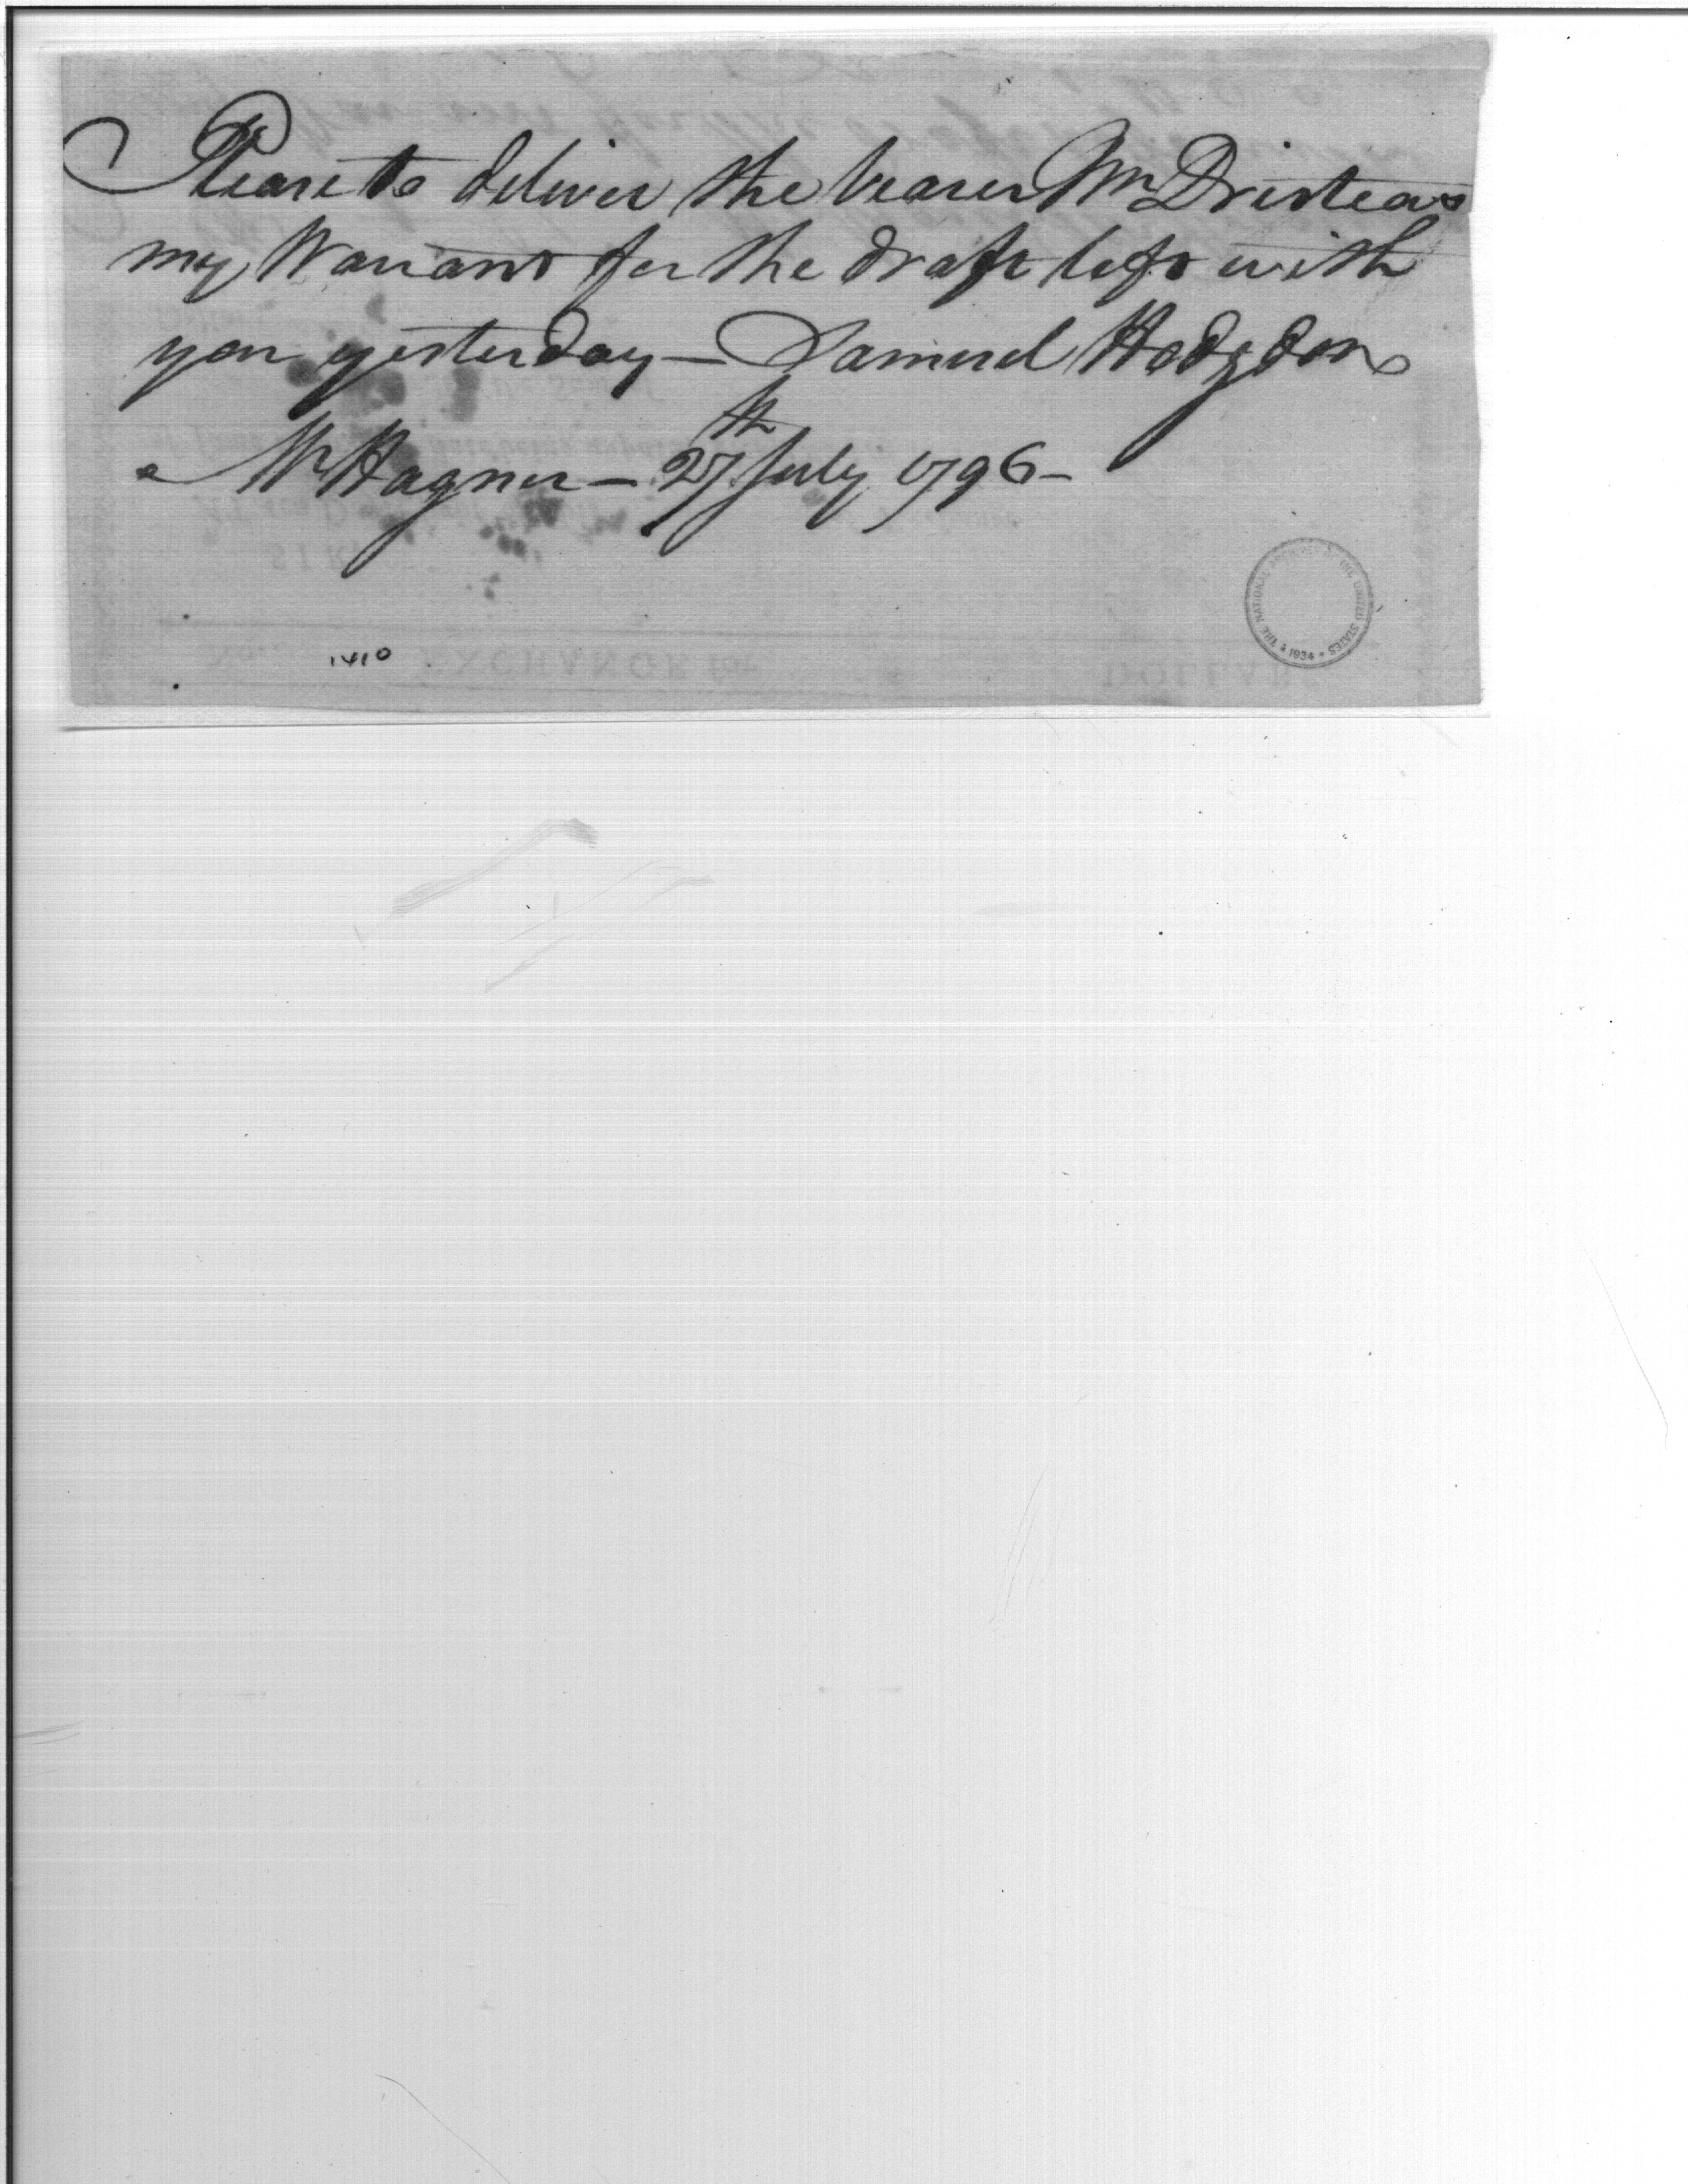 Please to deliver the bearer Mr
my Warrant for the draft left with
you yesterday — Samuel Hodgdon
Mr Hagner — 27th July 1796 —
THE NATIONAL ARCHIVES OF THE UNITED STATES * 1934 *
1410
EXCHANGE for DOLLARS